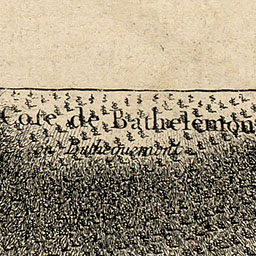 Cote de Bathelemon
ou Bathequemont